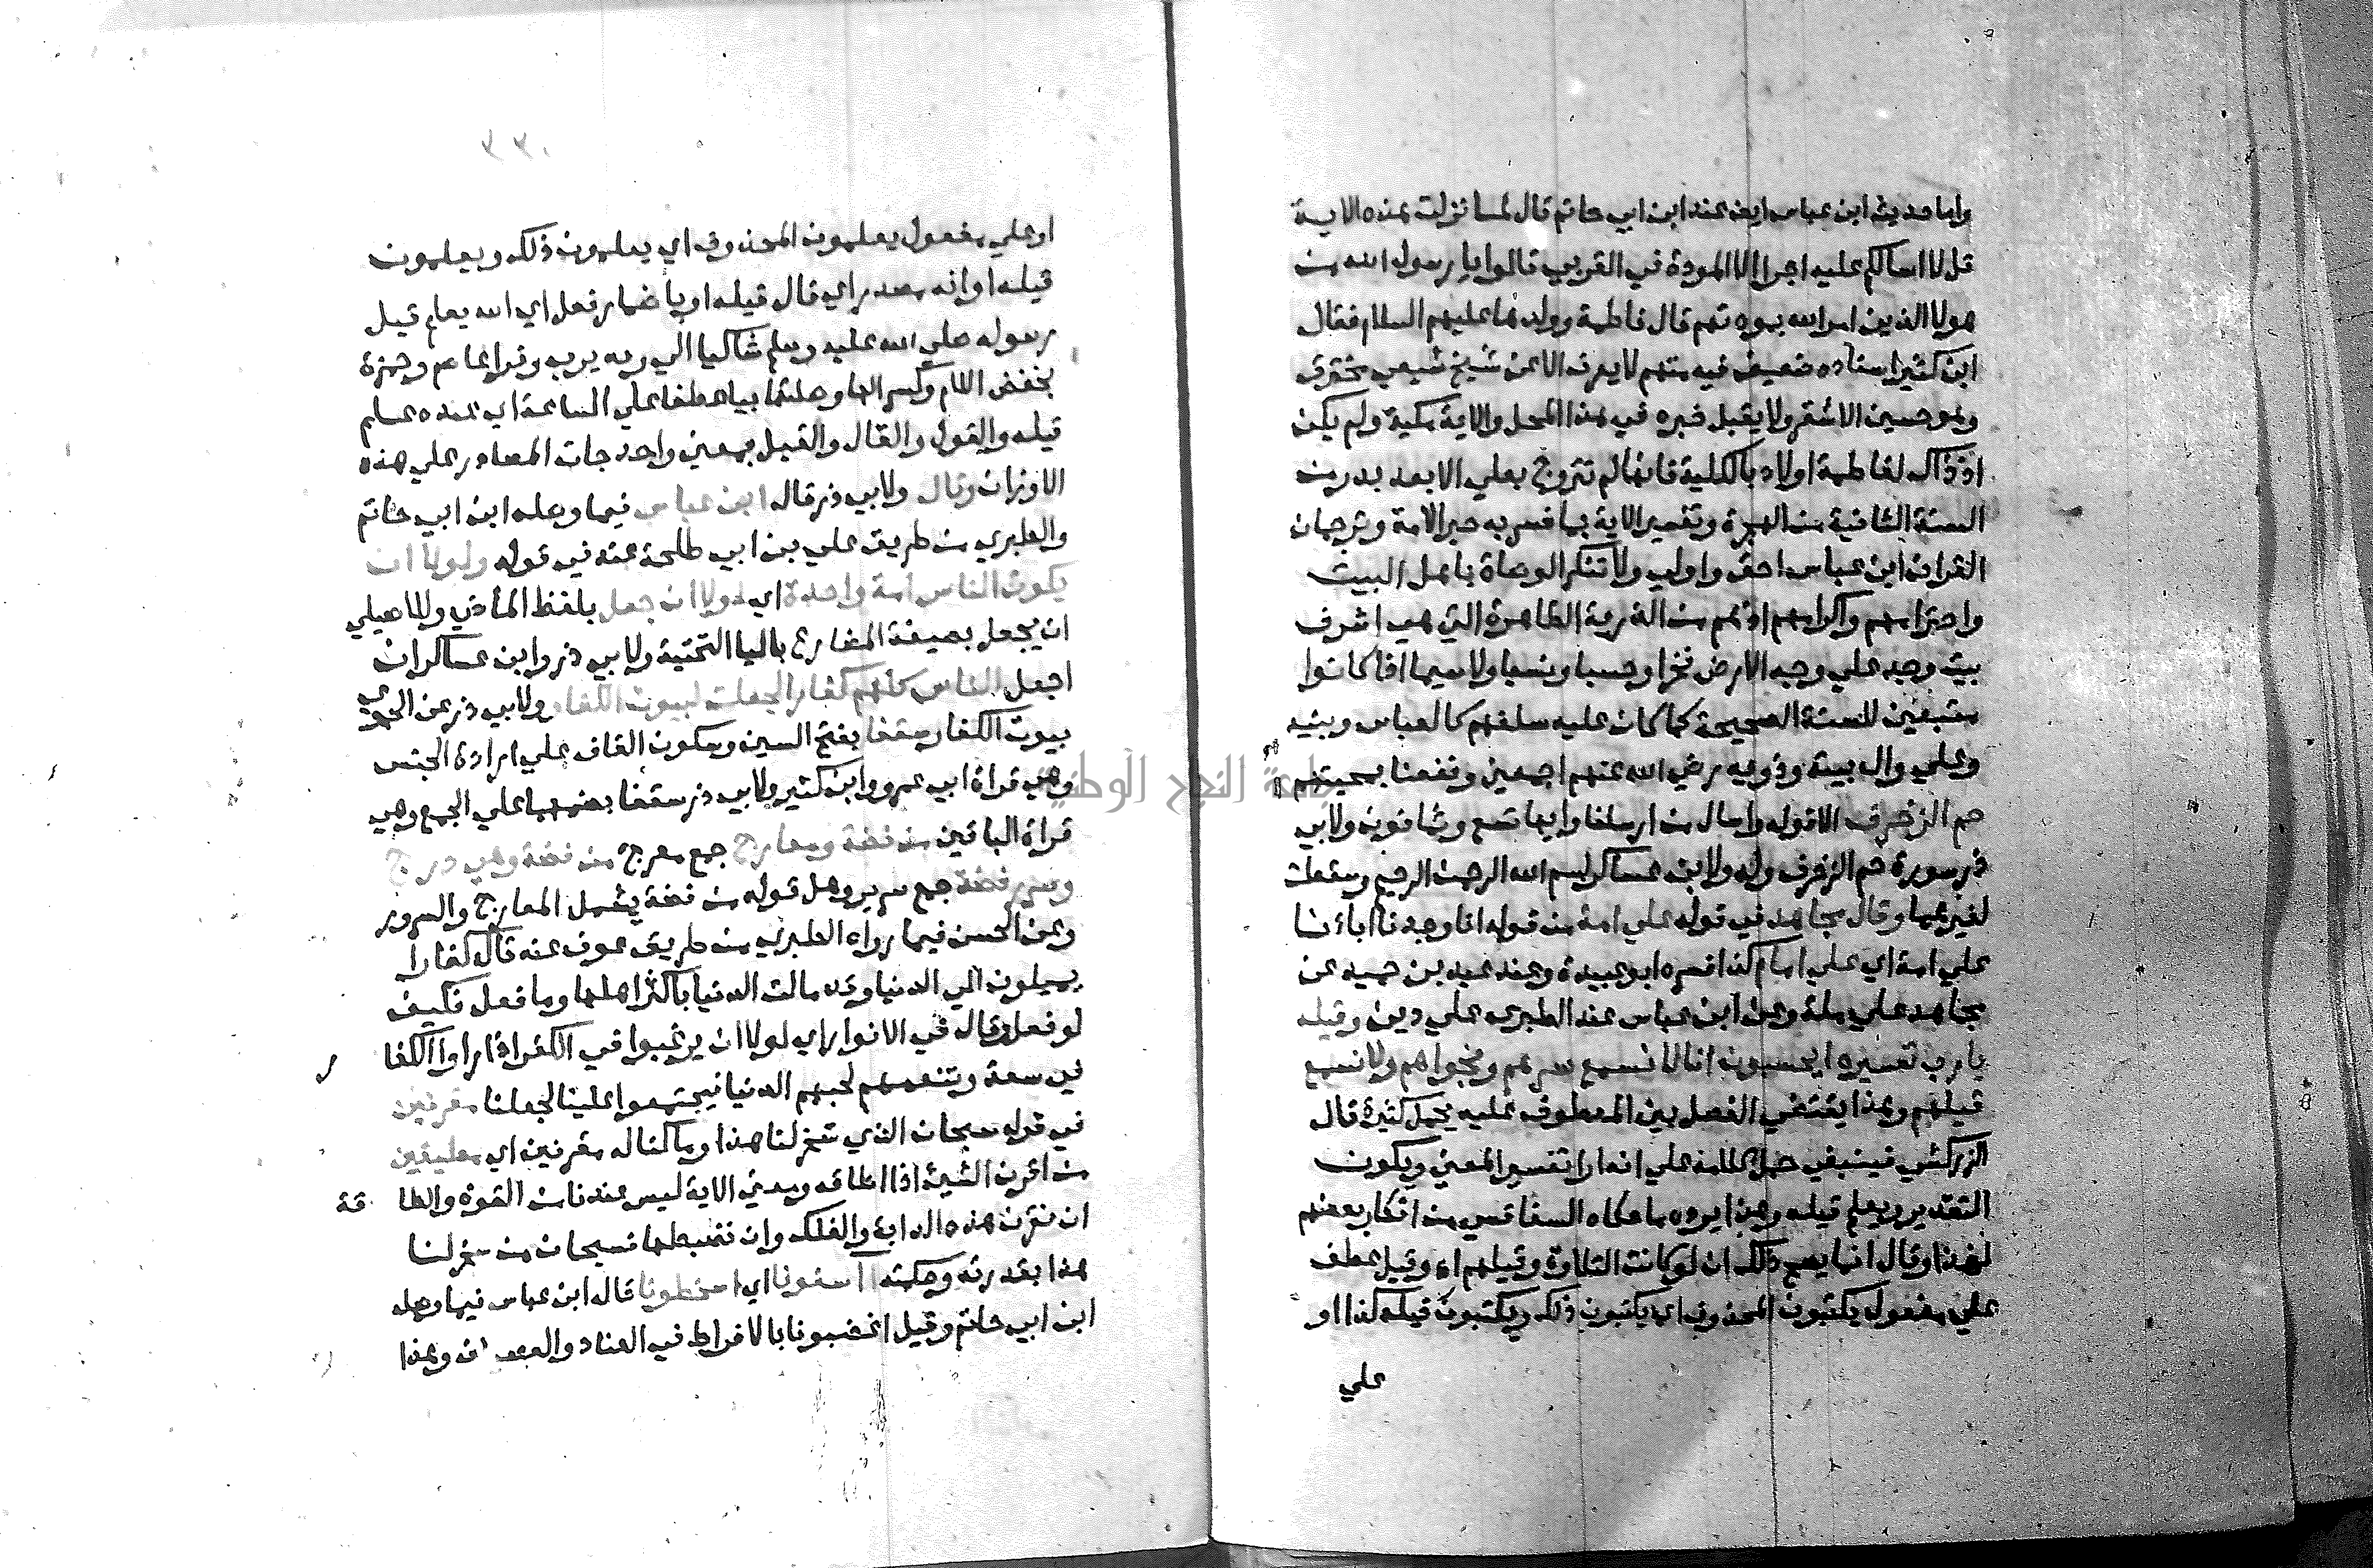 واما حديث ابن عباس ايضا عند ابن ابي حاتم قال لما نزلت هذه الاية
قل لا اسالكم عليه اجرا الا المودة في القربي قالوا يا رسول الله من
هولا الذين امر الله بمودتهم قال فاطمة وولدها عليهم السلام فقال
ابن كثير اسناده ضعيف فيه متهم لا يعرف الا عن شيخ شيعي مخترق
وهو حسين الاشقر ولا يقبل خبره في هذا المحل والاية مكية ولم يكن
اذ ذاك لفاطمة اولاد بالكلية فانها لم تتزوج بعلي الا بعد بدر من
السنة الثانية من الهجرة وتفسير الاية بما فسر به حبر الامة وترجمان
القران ابن عباس احق واولي ولا تنكر الوصاة باهل البيت
واحترامهم واكرامهم اذ هم من الذرية الطاهرة التي هي اشرف
بيت وجد علي وجه الارض فخرا وحسبا ونسبا ولا سيما اذا كانوا
متبعين للسنة الصحيحة كما كان عليه سلفهم كالعباس وبنيه
وعلي وال بيته وذويه رضي الله عنهم اجمعين ونفعنا بمحبتهم
حم الزخرف الا قوله واسال من ارسلنا وايها تسع وثمانون ولابي
ذر سورة حم الزخرف وله ولابن عساكر بسم الله الرحمن الرحيم وسقطت
لغيرهما وقال مجاهد في قوله علي امة من قوله انا وجدنا اباءنا
علي امة اي علي امام كذا فسره ابو عبيدة وعند عبد بن حميد عن
مجاهد علي ملة وعن ابن عباس عند الطبري علي دين وقيله
يا رب تفسيره ايحسبون انا لا نسمع سرهم ونجواهم ولا نسمع
قيلهم وهذا يقتضي الفصل بين المعطوف عليه بجمل كثيرة قال
الزركشي فينبغي حمل كلامه علي انه اراد تفسير المعني ويكون
التقدير ويعلم قيله وهذا يرده ما حكاه السفاقسي من انكار بعضهم
لهذا وقال انما يصح ذلك ان لو كانت التلاوة وقيلهم اه وقيل عطف
علي مفعول يكتبون المحذوف اي يكتبون ذلك ويكتبون قيله كذا او
علي
٣٣٠
او علي مفعول يعلمون المحذوف اي يعلمون ذلك ويعلمون
قيله او انه مصدر اي قال قيله او باضمار فعل اي الله يعلم قيل
رسوله صلي الله عليه وسلم شاكيا الي ربه يرب وقرا عاصم وحمزة
بخفض اللام وكسر الها وصلتها بيا عطفا علي الساعة اي عنده علم
قيله والقول والقال والقيل بمعني واحد جات المصادر علي هذه
الاوزان وقال ولابي ذر قال ابن عباس فيما وصله ابن ابي حاتم
والطبري من طريق علي بن ابي طلحة عنه في قوله ولولا ان
يكون الناس امة واحدة اي لولا ان جعل بلفظ الماضي وللاصيلي
ان يجعل بصيغة المضارع باليا التحتية ولابي ذر وابن عساكر ان
اجعل الناس كلهم كفارا لجعلت لبيوت الكفار ولابي ذر عن الحموي
بيوت الكفار سقفا بفتح السين وسكون القاف علي ارادة الجنس
وهي قراة ابي عمرو وابن كثير ولابي ذر سقفا بضمهما علي الجمع وهي
قراة الباقين من فضة ومعارج جمع معرج من فضة وهي درج
وسرر فضة جمع سرير وهل قوله من فضة يشمل المعارج والسرور
وعن الحسن فيما رواه الطبري من طريق عوف عنه قال كفارا
يميلون الي الدنيا وقد مالت الدنيا باكثر اهلها وما فعل فكيف
لو فعل وقال في الانوار اي لولا ان يرغبوا في الكفر اذا راوا الكفا ر
في سعة وتنعم لحبهم الدنيا فيجتمعوا علينا لجعلنا مقرنين
في قوله سبحان الذي سخر لنا هذا وما كنا له مقرنين اي مطيقين
من اقرن الشيء اذا اطاقه ومعني الاية ليس عندنا من القوة والطا قة
ان نقرن هذه الدابة والفلك وان نضبطها فسبحان من سخر لنا
هذا بقدرته وحكمته اسفونا اي اسخطونا قال ابن عباس فيما وصله
ابن ابي حاتم وقيل اغضبونا بالافراط في العناد والعصيان وهذا